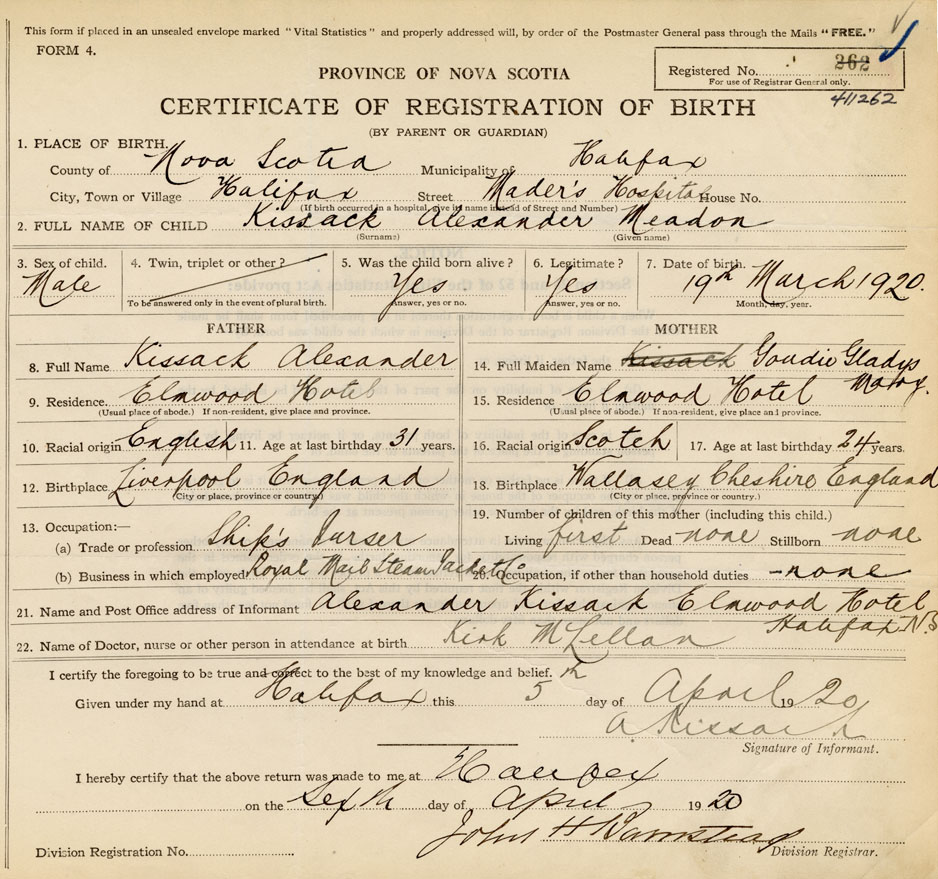 This form if placed in an unsealed envelope marked "Vital Statistics" and properly addressed will, by order of the Postmaster General pass through the Mails "FREE."
FORM 4.
PROVINCE OF NOVA SCOTIA
Registered No. 262
For use of Registrar General only.
411262
CERTIFICATE OF REGISTRATION OF BIRTH
(BY PARENT OR GUARDIAN)
1. PLACE OF BIRTH.
County of Nova Scotia Municipality of Halifax
City, Town or Village Halifax Street Mader's Hospital House No.
(If birth occurred in a hospital, give its name instead of Street and Number)
2. FULL NAME OF CHILD Kissack Alexander Meadon
(Surname) (Given name)
3. Sex of child. 4. Twin, triplet or other? 5. Was the child born alive? 6. Legitimate? 7. Date of birth.
Male Yes Yes 19th March 1920.
To be answered only in the event of plural birth. Answer, yes or no. Answer, yes or no. Month, day, year.
FATHER MOTHER
8. Full Name Kissack Alexander 14. Full Maiden Name Kissack Goudie Gladys Mary.
9. Residence. Elmwood Hotel 15. Residence Elmwood Hotel
(Usual place of abode.) If non-resident, give place and province. (Usual place of abode.) If non-resident, give place and province.
10. Racial origin English 11. Age at last birthday 31 years. 16. Racial origin Scotch 17. Age at last birthday 24 years.
12. Birthplace Liverpool England 18. Birthplace Wallasey Cheshire England
(City or place, province or country.) (City or place, province or country.)
13. Occupation:— 19. Number of children of this mother (including this child.)
(a) Trade or profession Ship's Purser Living first Dead none Stillborn none
(b) Business in which employed Royal Mail Steam Packet Co. 20. Occupation, if other than household duties - none
21. Name and Post Office address of Informant Alexander Kissack Elmwood Hotel
Halifax N.S
22. Name of Doctor, nurse or other person in attendance at birth Kirk McLellan
I certify the foregoing to be true and correct to the best of my knowledge and belief.
Given under my hand at Halifax this 5th day of April 1920
A Kissack
Signature of Informant.
I hereby certify that the above return was made to me at Halifax
on the Sixth day of April 1920
John H Barnstead
Division Registration No. Division Registrar.